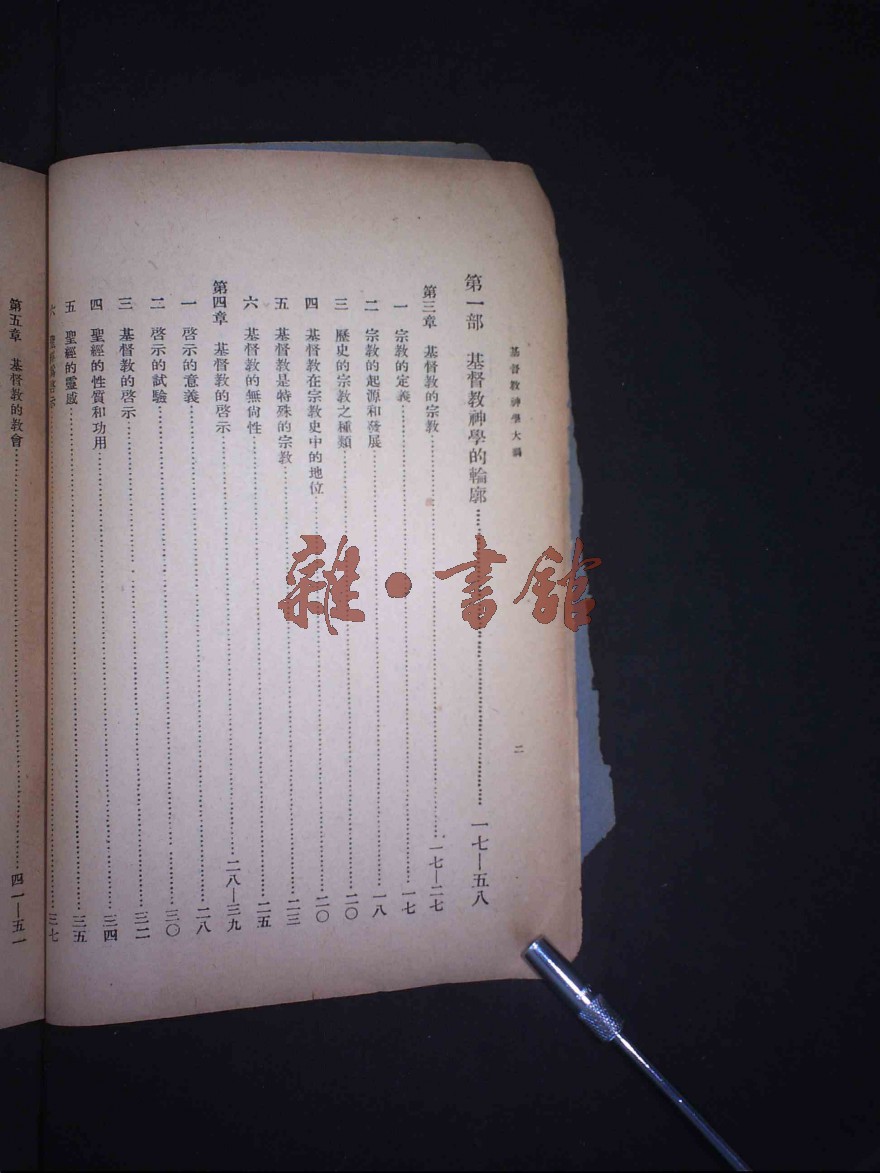 基督教神學大綱
二
第一部 基督教神學的輪廓 一七—五八
第三章 基督教的宗教 一七—二七
一 宗教的定義 一七
二 宗教的起源和發展 一八
三 歷史的宗教之種類 二〇
四 基督教在宗教史中的地位 二〇
五 基督教是特殊的宗教 二三
六 基督教的無尙性 二五
第四章 基督教的啓示 二八—三九
一 啓示的意義 二八
二 啓示的試驗 三〇
三 基督教的啓示 三二
四 聖經的性質和功用 三四
五 聖經的靈感 三五
六 啓示 三七
第五章 基督教的教會 四一—五一
雜·書館